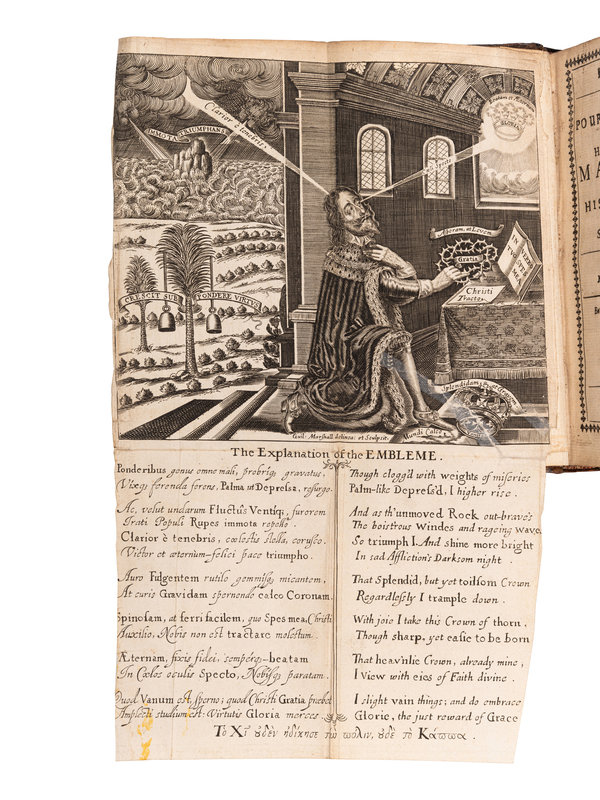 IMMOTA, TRIUMPHANS
Clarior è tenebris
CRESCIT SUB PONDERE VIRTUS
Beatam et Æternam
GLORIA
Asperam, at Levem
Gratia
IN VERBO TUO SPES MEA
Christi
Tracto
Splendidam, at Gravem
Mundi Calco
Guil. Marshall delinea: et Sculpsit.
The Explanation of the EMBLEME.
Ponderibus genus omne mali, probriq; gravatus,
Vixq; ferenda ferens, Palma ut Depressa, resurgo.
Ac, velut undarum Fluctûs Ventiq; furorem
Irati Populi Rupes immota repello.
Clarior è tenebris, cœlestis stella, corusco.
Victor et æternum-felici pace triumpho.
Auro Fulgentem rutilo gemmisq; micantem,
At curis Gravidam spernendo calco Coronam.
Spinosam, at ferri facilem, quo Spes mea, Christi
Auxilio, Nobis non est tractare molestum.
Æternam, fixis fidei, semperq;-beatam
In Cœlos oculis Specto, Nobisq; paratam.
Quod Vanum est, sperno; quod Christi Gratia præbet
Amplecti studium est: Virtutis Gloria merces.
Though clogg'd with weights of miseries
Palm-like Depress'd, I higher rise.
And as th'unmoved Rock out-brave's
The boistrous Windes and rageing wave
So triumph I. And shine more bright
In sad Affliction's Darksom night.
That Splendid, but yet toilsom Crown
Regardlessly I trample down.
With joie I take this Crown of thorn,
Though sharp, yet easie to be born
That heav'nlie Crown, already mine,
I View with eies of Faith divine.
I slight vain things; and do embrace
Glorie, the just reward of Grace
Τὸ Χῖ ὐδὲν ἠδίκησε τὼ πόλιν, ὐδὲ τὸ Κάππα.
POUR
MA
HIS